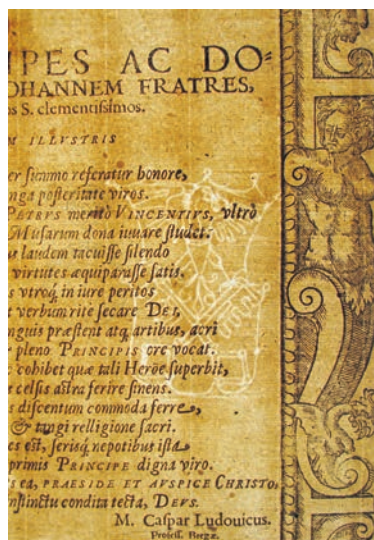 IPES AC DO=
OHANNEM FRATRES,
os S. clementissimos.
M ILLVSTRIS
er summo referatur honore,
nga posteritate viros.
PETRVS meritò VINCENTIVS, vltrò
Musarum dona iuuare studet:
us laudem tacuisse silendo
virtutes æquiparasse satis.
s vtroq; in iure peritos
t verbum rite secare DEI,
inguis præstent atq; artibus, acri
pleno PRINCIPIS ore vocat.
cohibet quæ tali Heröe superbit,
s celsis astra ferire sinens.
s discentum commoda ferre,
& tangi relligione sacri.
es est, serisq; nepotibus ista
primis PRINCIPE digna viro.
s ea, PRAESIDE ET AVSPICE CHRISTO,
instinctu condita tecta, DEVS.
M. Caspar Ludouicus.
Profess. Bergæ.